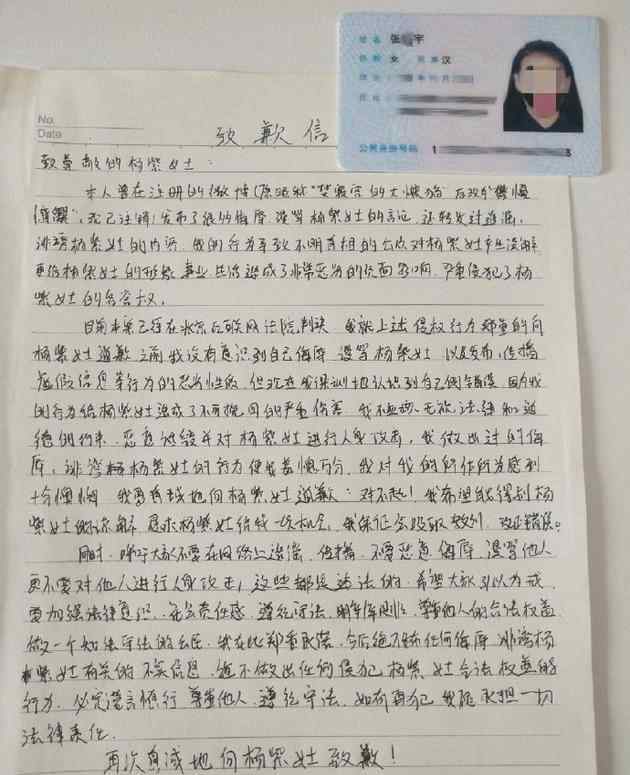 姓名 张 宇
性别 女 民族 汉
公民身份号码 1 3
No.
Date
致歉信
致尊敬的杨紫女士:
本人曾在注册的微博(原昵称"楚 的大 "后改为
",现已注销)发布了很多侮辱、谩骂杨紫女士的言论,还转发过造谣、
诽谤杨紫女士的内容,我的行为导致不明真相的公众对杨紫女士产生误解
更给杨紫女士的 事业、生活造成了非常恶劣的负面影响,严重侵犯了杨
紫女士的名誉权。
目前本案已经在北京互联网法院判决,我就上述侵权行为郑重的向
杨紫女士道歉,之前我没有意识到自己侮辱、谩骂杨紫女士,以及发布、传播
虚假信息等行为的恶劣性质,但现在我深刻地认识到自己的错误,因为我
的行为给杨紫女士造成了不可挽回的严重伤害,我不应 无视法律和道
德的约束,恣意 并对杨紫女士进行人身攻击,我做出过的侮
辱、诽谤杨紫女士的行为使我羞愧万分,我对我的所作所为感到
十分懊悔,我要真诚地向杨紫女士道歉:对不起!我希望能得到杨
紫女士的谅解,恳求杨紫女士给我一次机会,我保证会吸取教训,改正错误。
同时,呼吁大家不要在网络上造谣、传播,不要恣意侮辱、谩骂他人
更不要对他人进行人身攻击,这些都是违法的,希望大家引以为戒,
要加强法律意识、社会责任感,遵纪守法,明辨是非,尊重他人的合法权益
做一个知法守法的公民,我在此郑重承诺,今后绝不转发任何侮辱、诽谤杨
紫女士有关的不实信息,绝不做出任何侵犯杨紫女士合法权益的
行为,必定谨言慎行,尊重他人,遵纪守法,如有再犯,我愿承担一切
法律责任。
再次真诚地向杨紫女士致歉!